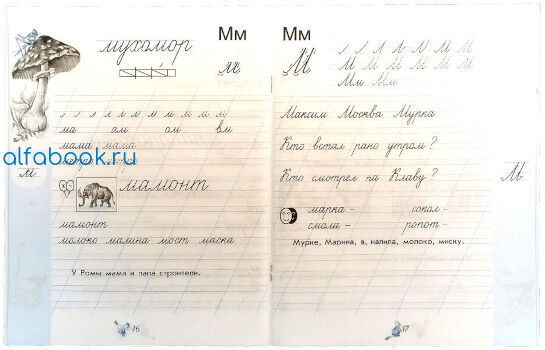 Мм
мухомор
м
ма ам ом вм
мама мама
alfabook.ru
М
мамонт
мамонт
молоко малина мост маска
У Ромы мама и папа строители.
16
Мм
М
М М М М М М
Мм Мм
Максим Москва Мурка
Кто встал рано утром?
Кто смотрел на Клаву?
М
марка – сокол –
смола – ропот –
Мурке, Марина, в, налила, молоко, миску.
17